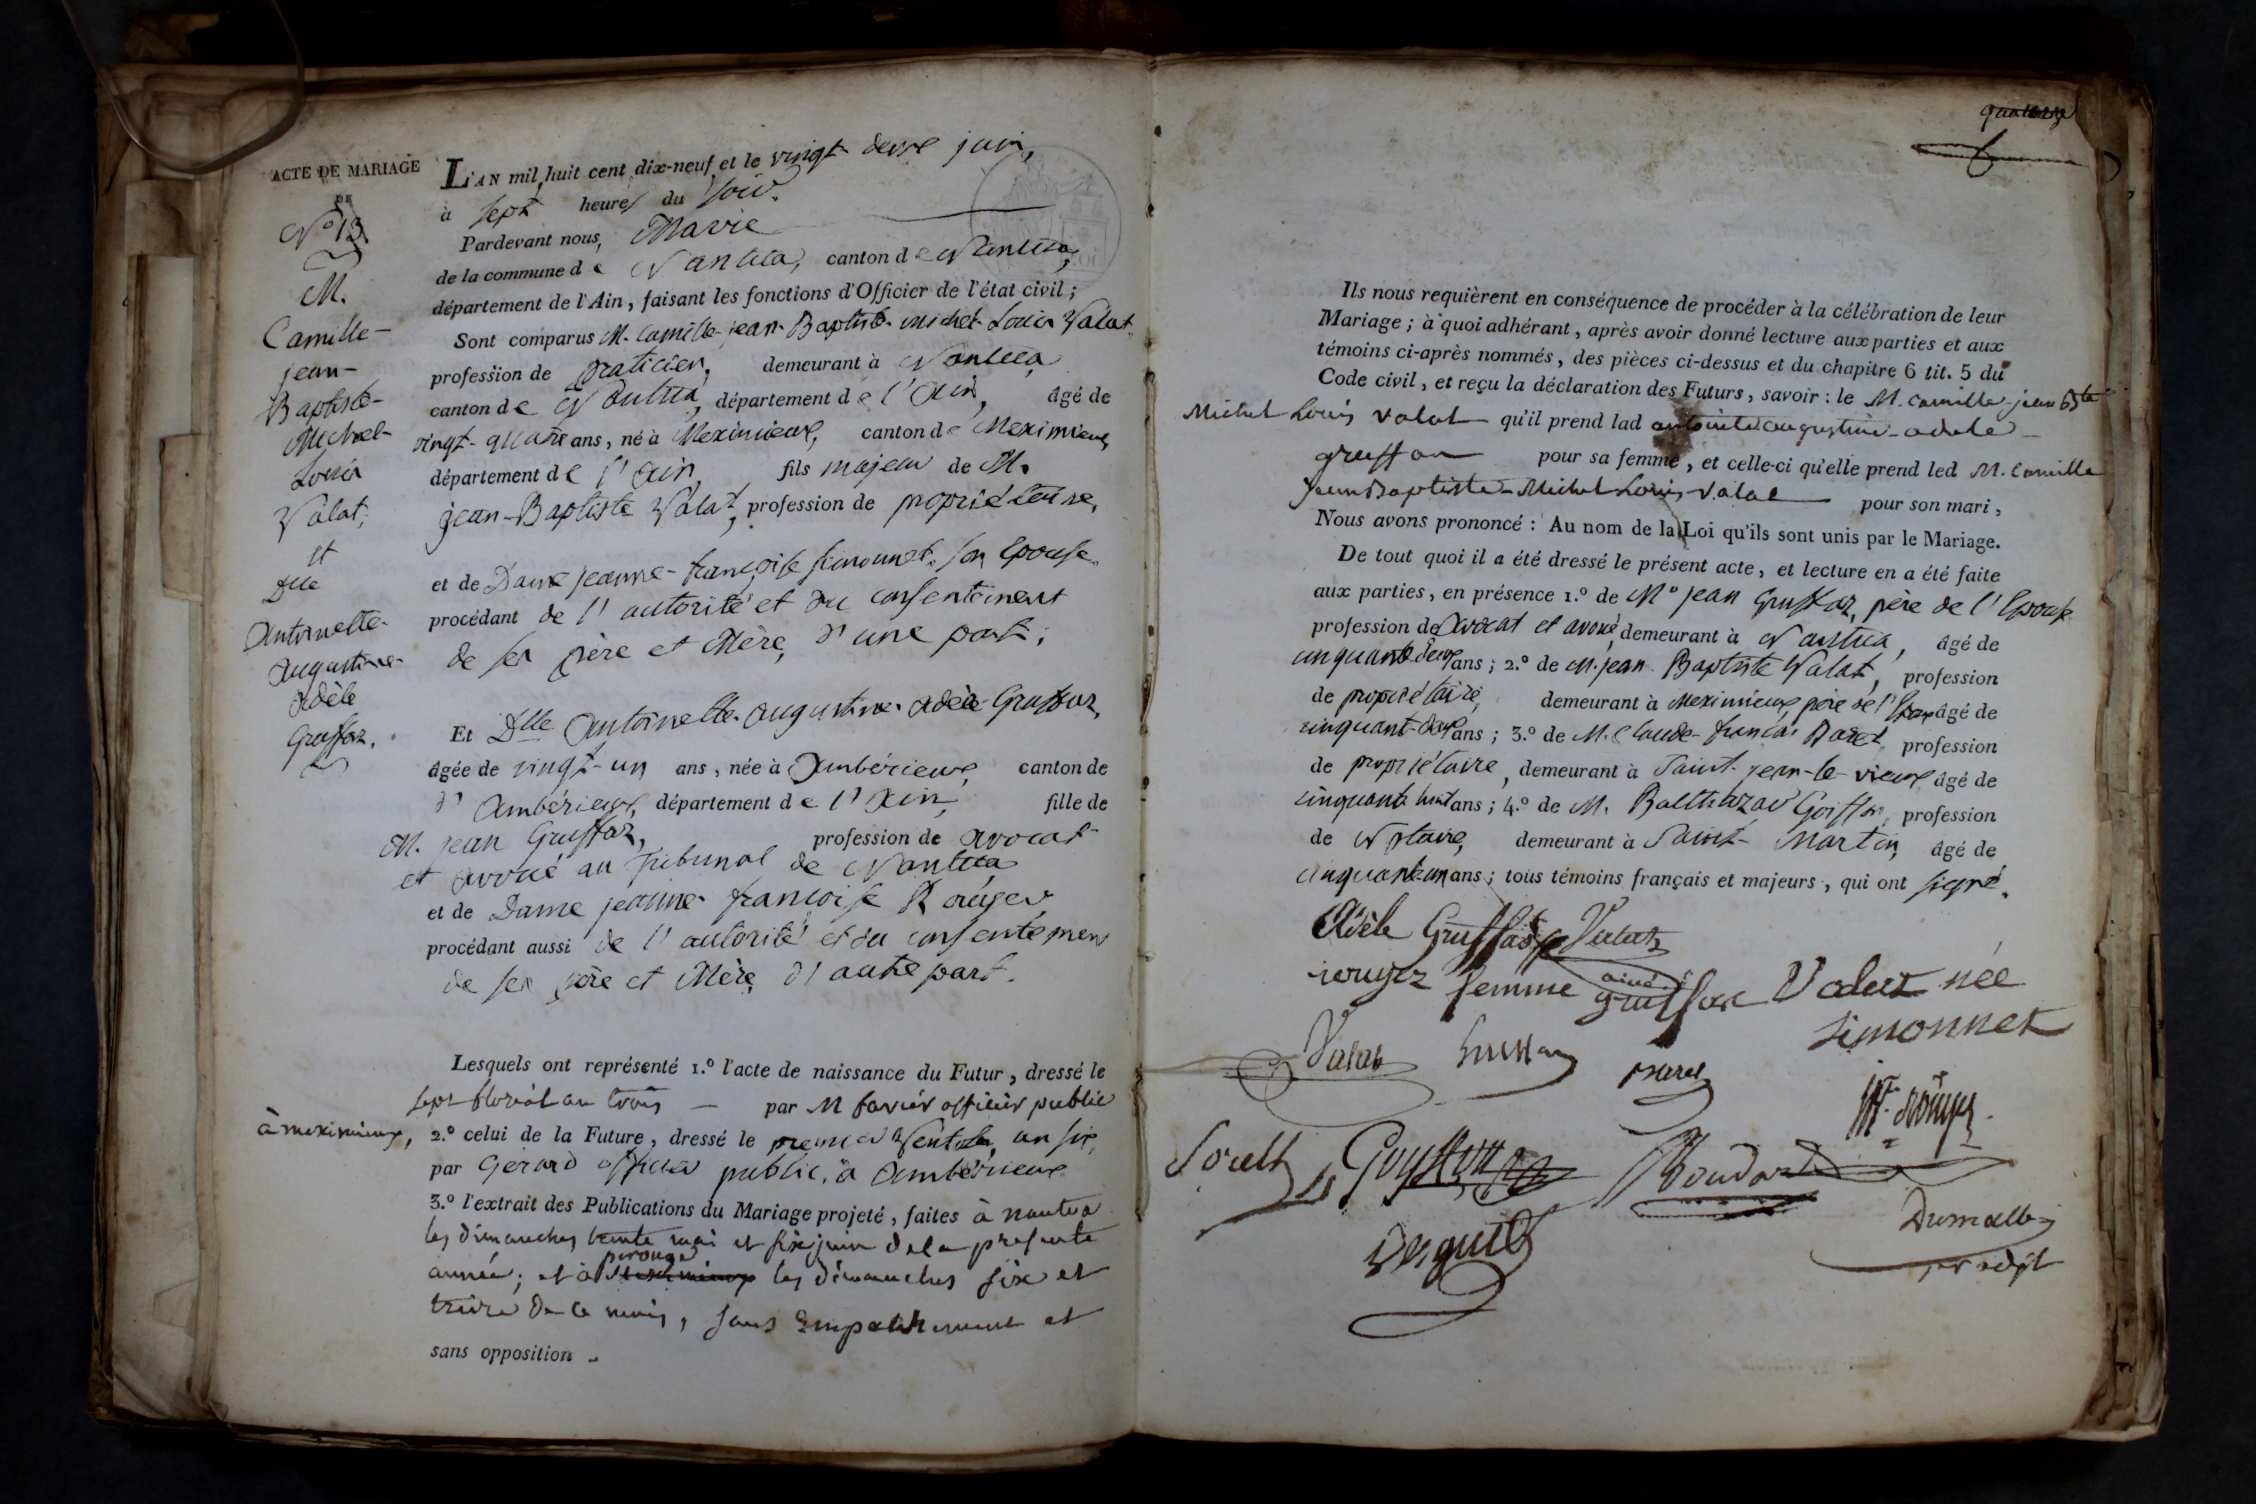 ACTE DE MARIAGE
DE
N.° 13.
M.
Camille-
jean-
Baptiste-
Michel-
Louis
Valat,
et
Dlle
Antoinette-
Augustine-
Adèle
Gruffaz.
L'AN mil huit cent dix-neuf et le vingt deux juin,
à sept heures du soir.
Pardevant nous, Maire
de la commune de Nantua, canton de Nantua,
département de l'Ain, faisant les fonctions d'Officier de l'état civil;
Sont comparus M. Camille-jean-Baptiste-michel-Louis Valat
profession de praticien, demeurant à Nantua
canton de Nantua, département de l'Ain, âgé de
vingt-quatre ans, né à Meximieux, canton de Meximieux
département de l'Ain, fils majeur de M.
jean-Baptiste Valat, profession de propriétaire,
et de Dame jeanne-françoise simonnet son Epouse
procédant de l'autorité et du consentement
de ses père et Mère, d'une part;
Et Dlle Antoinette-augustine-adèle Gruffaz,
âgée de vingt-un ans, née à Ambérieux, canton de
d'Ambérieux, département de l'Ain, fille de
M. jean Gruffaz, profession de avocat
et avoué au Tribunal de Nantua
et de Dame jeanne-françoise Rouger
procédant aussi de l'autorité et du consentement
de ses père et Mère, d'autre part.
Lesquels ont représenté 1.° l'acte de naissance du Futur, dressé le
sept floréal an trois — par M favier officier public
à meximieux,
2.° celui de la Future, dressé le premier Ventôse, an six,
par Gerard officier public, à Ambérieux
3.° l'extrait des Publications du Mariage projeté, faites à nantua
les dimanches trente mai et six juin de la presente
perouge
année; et à Meximieux les dimanches six et
treize de ce mois, sans empechement et
sans opposition.
quatorze
Ils nous requièrent en conséquence de procéder à la célébration de leur
Mariage; à quoi adhérant, après avoir donné lecture aux parties et aux
témoins ci-après nommés, des pièces ci-dessus et du chapitre 6 tit. 5 du
Code civil, et reçu la déclaration des Futurs, savoir: le M. camille-jean bste
Michel Louis Valat qu'il prend lad antoinette augustine-adele
gruffaz pour sa femme, et celle-ci qu'elle prend led M. Camille
Jean Baptiste-Michel Louis-Valat pour son mari,
Nous avons prononcé: Au nom de la Loi qu'ils sont unis par le Mariage.
De tout quoi il a été dressé le présent acte, et lecture en a été faite
aux parties, en présence 1.° de M.e jean Gruffaz, père de l'Epouse
profession de avocat et avoué, demeurant à Nantua, âgé de
cinquante deux ans; 2.° de M. jean-Baptiste Valat, profession
de propriétaire, demeurant à Meximieux père de l'Epoux âgé de
cinquante-deux ans; 3.° de M. Claude-françois Baret, profession
de propriétaire, demeurant à Saint-jean-le-vieux âgé de
cinquante huit ans; 4.° de M. Balthazar Goiffon, profession
de Notaire, demeurant à Saint-Martin, âgé de
cinquante un ans; tous témoins français et majeurs, qui ont signé.
Adèle Gruffaz Valat
rouger femme gruffaz Valat née
simonnet
Valat Gruffaz
Rouger
Goyffon